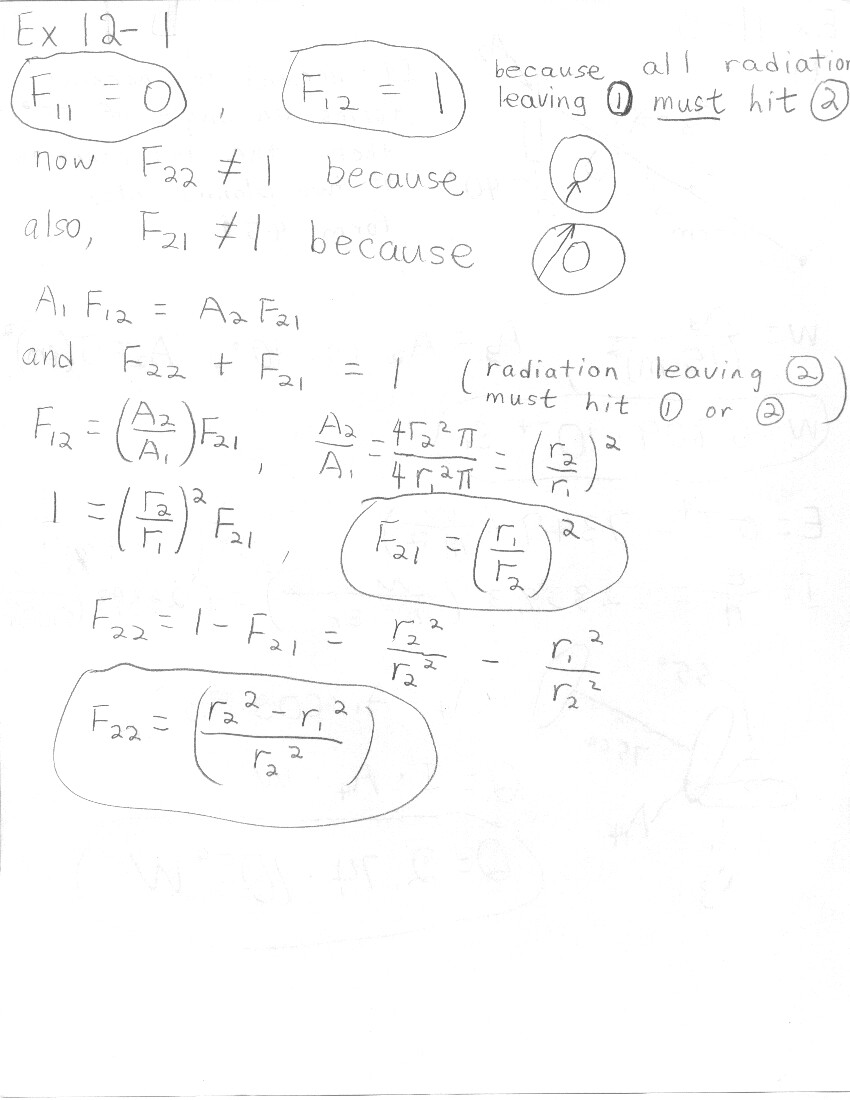 Ex 12-1
F₁₁ = 0 , F₁₂ = 1 because all radiation
leaving ① must hit ②
now F₂₂ ≠ 1 because
also, F₂₁ ≠ 1 because
A₁ F₁₂ = A₂ F₂₁
and F₂₂ + F₂₁ = 1 (radiation leaving ②
must hit ① or ②)
F₁₂ = (A₂/A₁) F₂₁ , A₂/A₁ = 4r₂²π/4r₁²π = (r₂/r₁)²
1 = (r₂/r₁)² F₂₁ , F₂₁ = (r₁/r₂)²
F₂₂ = 1 - F₂₁ = r₂²/r₂² - r₁²/r₂²
F₂₂ = ((r₂² - r₁²)/r₂²)